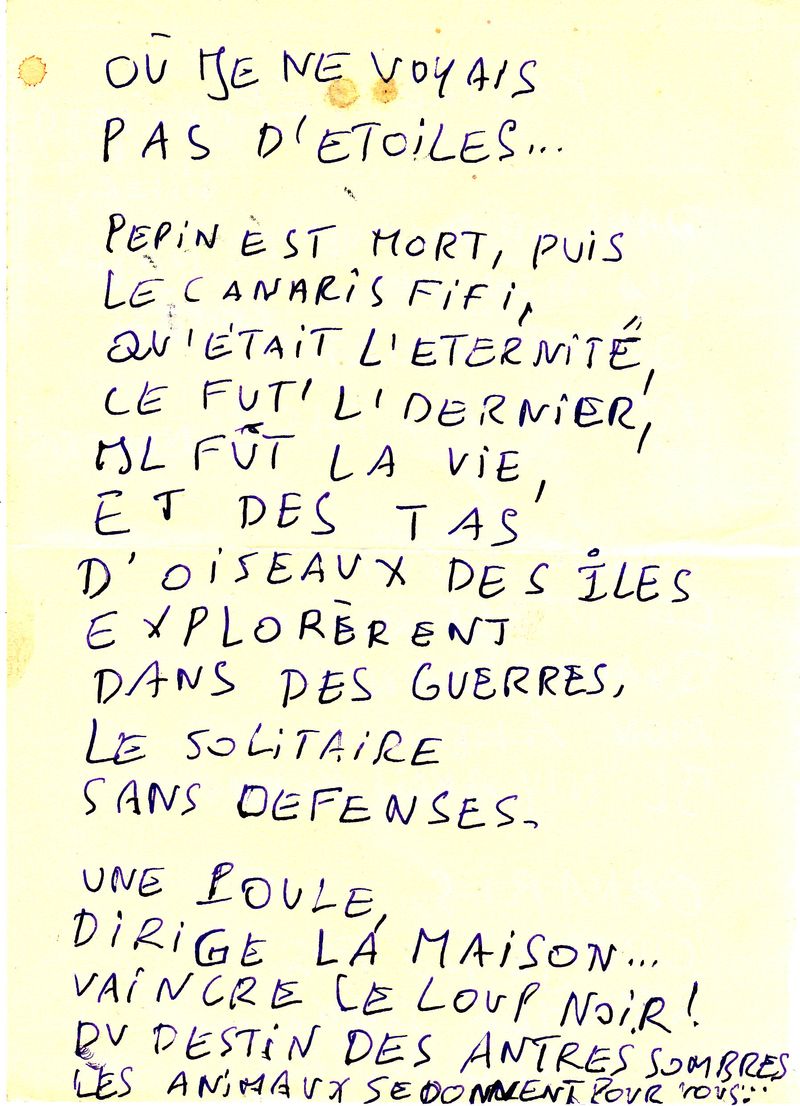 OÙ JE NE VOYAIS
PAS D'ETOILES...
PEPiN EST MORT, PUiS
LE CANARiS FiFi,
QU'ÉTAiT L'ETERNiTÉ,
CE FUT' L'DERNiER,
IL FÛT LA ViE,
ET DES TAS
D'OiSEAUX DES ÎLES
EXPLORÈRENT
DANS DES GUERRES,
LE SOLiTAiRE
SANS DEFENSES.
UNE POULE,
DiRiGE LA MAiSON...
VAiNCRE LE LOUP NOiR!
DU DESTiN DES ANTRES SOMBRES
LES ANiMAUX SE DONNENT POUR VOUS...